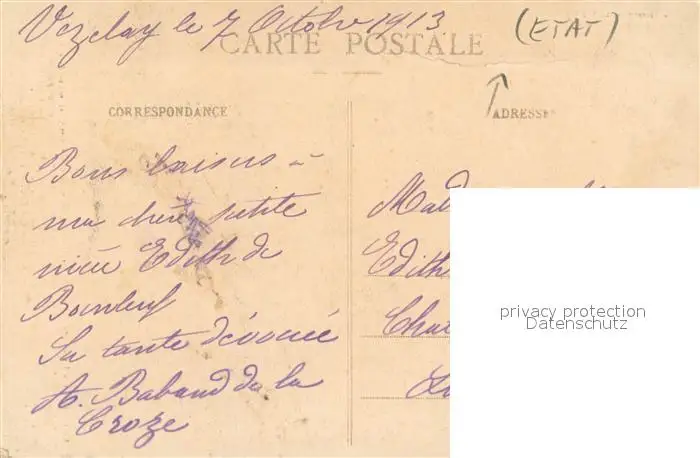 Vezelay le 7 Octobre 1913
(ETAT)
CARTE POSTALE
CORRESPONDANCE
ADRESSE
Bons baisers à
ma chère petite
nièce Edith de
Sa tante dévouée
A. Babaud de la
Croze
Edith
privacy protection
Datenschutz